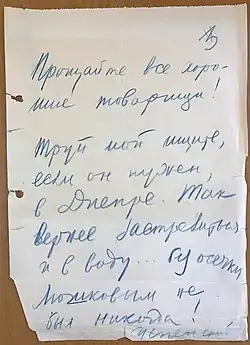 Прощайте все хоро-
шие товарищи!
Труп мой ищите,
если он нужен,
в Днепре. Так
вернее застрелиться
и в воду...
Мошковым не
был никогда!